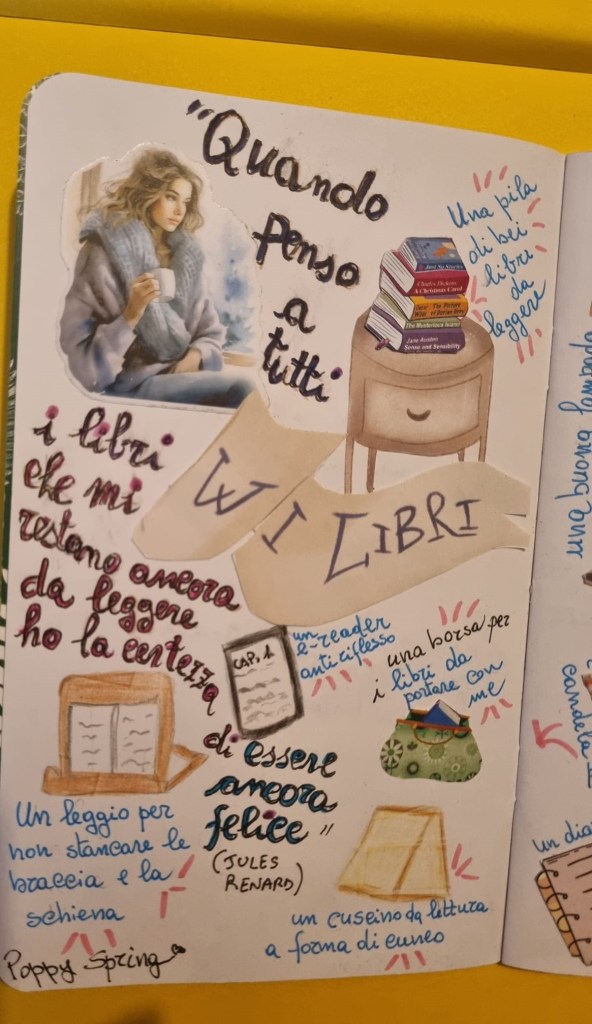 "Quando
penso
a
tutti
i libri
che mi
restano ancora
da leggere
ho la certezza
di essere
ancora
felice"
(JULES
RENARD)
Una pila
di bei
libri
da
leggere
Charles Dickens
A Christmas Carol
The Picture
The Mysterious Island
Jane Austen
Sense and Sensibility
W I LIBRI
CAP. 1
un
e-reader
antiriflesso
una borsa per
i libri da
portare con
me
Un leggio per
non stancare le
braccia e la
schiena
un cuscino da lettura
a forma di cuneo
Poppy Spring
una buona lampada
candela
un dia